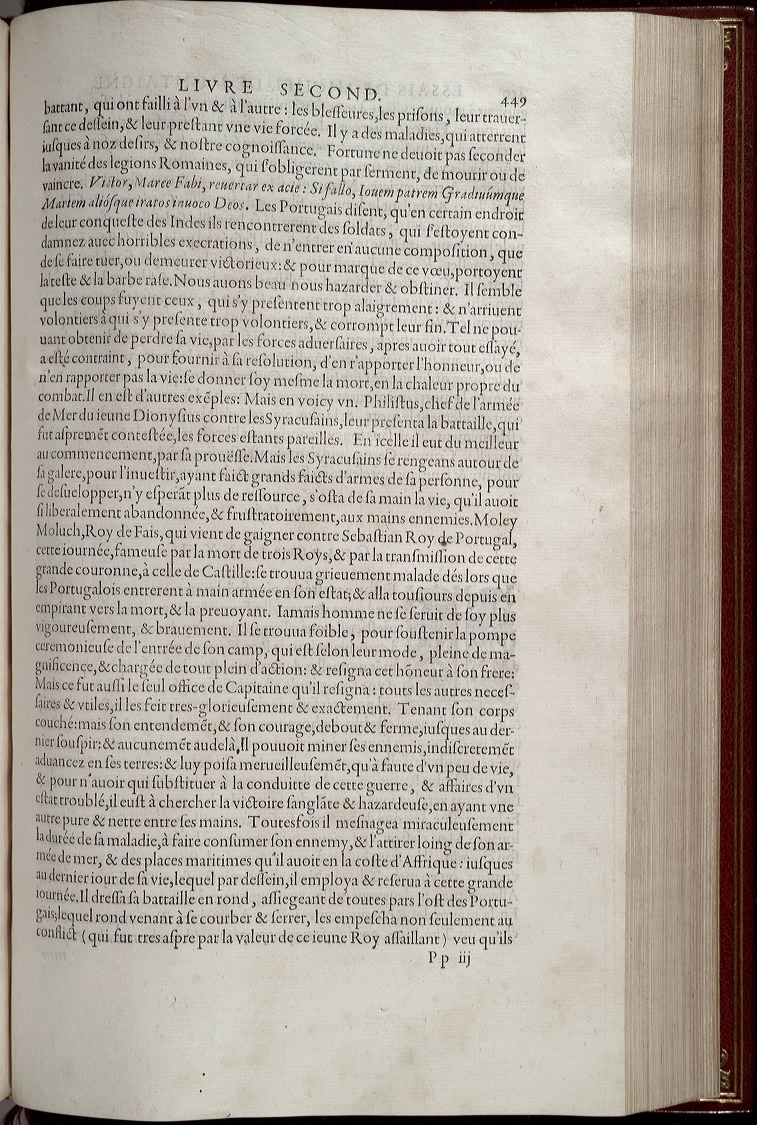 LIVRE SECOND. 449
battant, qui ont failli à l'vn & à l'autre : les blesseures,les prisons, leur trauer-
sant ce dessein,& leur prestant vne vie forcée. Il y a des maladies,qui atterrent
iusques à noz desirs, & nostre cognoissance. Fortune ne deuoit pas seconder
la vanité des legions Romaines, qui s'obligerent par serment, de mourir ou de
vaincre. Victor, Marce Fabi, reuertar ex acie : Si fallo, Iouem patrem Gradiuúmque
Martem aliósque iratos inuoco Deos. Les Portugais disent, qu'en certain endroit
de leur conqueste des Indes ils rencontrerent des soldats, qui s'estoyent con-
damnez auec horribles execrations, de n'entrer en aucune composition, que
de se faire tuer,ou demeurer victorieux:& pour marque de ce vœu,portoyent
la teste & la barbe rase.Nous auons beau nous hazarder & obstiner. Il semble
que les coups fuyent ceux, qui s'y presentent trop alaigrement : & n'arriuent
volontiers à qui s'y presente trop volontiers,& corrompt leur fin.Tel ne pou-
uant obtenir de perdre sa vie,par les forces aduersaires, apres auoir tout essayé,
a esté contraint, pour fournir à sa resolution, d'en r'apporter l'honneur,ou de
n'en rapporter pas la vie:se donner soy mesme la mort,en la chaleur propre du
combat.Il en est d'autres exẽples: Mais en voicy vn. Philistus,chef de l'armée
de Mer du ieune Dionysius contre les Syracusains,leur presenta la battaille,qui
fut aspremẽt contestée,les forces estants pareilles. En icelle il eut du meilleur
au commencement,par sa prouësse.Mais les Syracusains se rengeans autour de
sa galere,pour l'inuestir,ayant faict grands faicts d'armes de sa personne, pour
se desuelopper,n'y esperãt plus de ressource, s'osta de sa main la vie, qu'il auoit
si liberalement abandonnée,& frustratoirement,aux mains ennemies.Moley
Moluch,Roy de Fais,qui vient de gaigner contre Sebastian Roy de Portugal,
cette iournée,fameuse par la mort de trois Roys,& par la transmission de cette
grande couronne,à celle de Castille:se trouua grieuement malade dés lors que
les Portugalois entrerent à main armée en son estat;& alla tousiours depuis en
empirant vers la mort,& la preuoyant. Iamais homme ne se seruit de soy plus
vigoureusement, & brauement. Il se trouua foible, pour soustenir la pompe
ceremonieuse de l'entrée de son camp, qui est selon leur mode, pleine de ma-
gnificence,&chargée de tout plein d'action: & resigna cet hõneur à son frere:
Mais ce fut aussi le seul office de Capitaine qu'il resigna : touts les autres neces-
saires & vtiles,il les feit tres-glorieusement & exactement. Tenant son corps
couché:mais son entendemẽt,& son courage,debout & ferme,iusques au der-
nier souspir:& aucunemẽt audelà,Il pouuoit miner ses ennemis,indiscretemẽt
aduancez en ses terres:& luy poisa merueilleusemẽt,qu'à faute d'vn peu de vie,
& pour n'auoir qui substituer à la conduitte de cette guerre, & affaires d'vn
estat troublé,il eust à chercher la victoire sanglãte & hazardeuse,en ayant vne
autre pure & nette entre ses mains. Toutesfois il mesnagea miraculeusement
la durée de sa maladie,à faire consumer son ennemy,& l'attirer loing de son ar-
mée de mer, & des places maritimes qu'il auoit en la coste d'Affrique : iusques
au dernier iour de sa vie,lequel par dessein,il employa & reserua à cette grande
iournée.Il dressa sa battaille en rond, assiegeant de toutes pars l'ost des Portu-
gais;lequel rond venant à se courber & serrer, les empescha non seulement au
conflict ( qui fut tres aspre par la valeur de ce ieune Roy assaillant ) veu qu'ils
P p iij